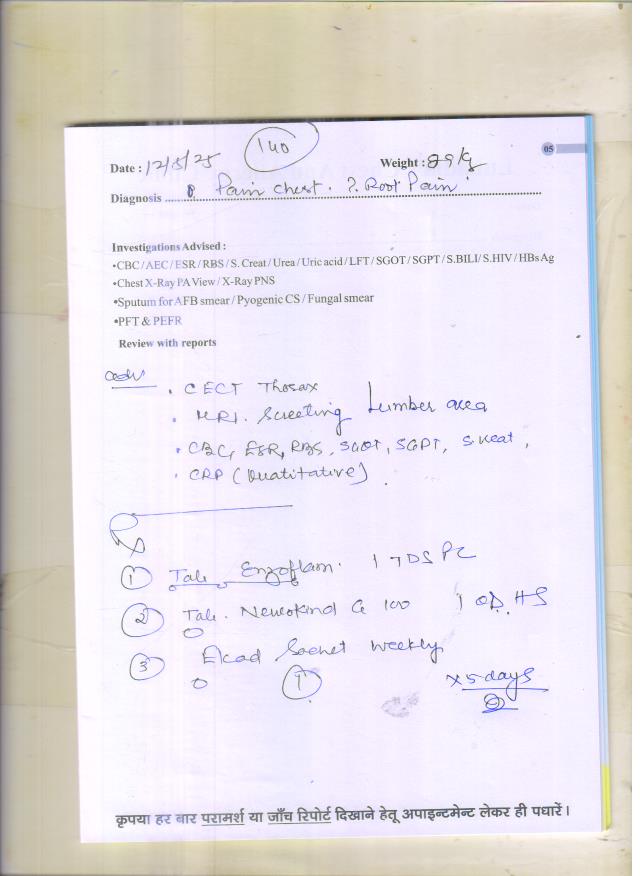 140
05
Date : 12/5/25 Weight : 89 kg
Diagnosis Pain chest. ? Root Pain
Investigations Advised :
•CBC / AEC / ESR / RBS / S. Creat / Urea / Uric acid / LFT / SGOT / SGPT / S.BILI / S.HIV / HBs Ag
•Chest X-Ray PA View / X-Ray PNS
•Sputum for AFB smear / Pyogenic CS / Fungal smear
•PFT & PEFR
Review with reports
adv
. CECT Thorax
. MRI. Screeting Lumber area
. CBC, ESR, RBS, SGOT, SGPT, S.Creat,
. CRP (Quatitative).
Rx
① Tab Enzoflam. 1 TDS PC
② Tab. Neurokind G 100 1 OD. HS
③ Sachet weekly
① x 5 days
कृपया हर बार परामर्श या जाँच रिपोर्ट दिखाने हेतू अपाइन्टमेन्ट लेकर ही पधारें।